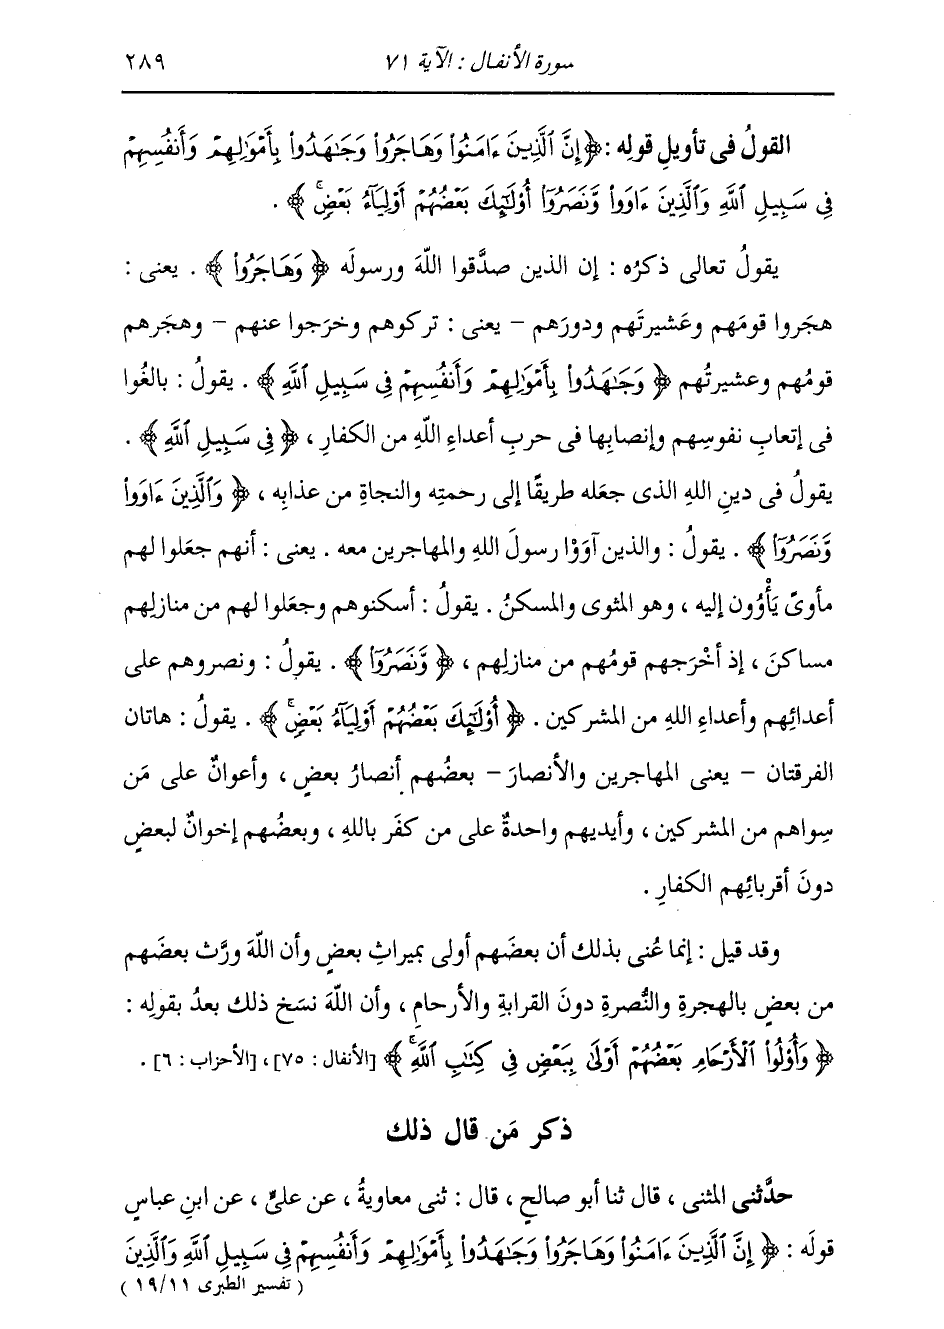 سورة الأنفال : الآية ٧١ ٢٨٩
القولُ فى تأويلِ قولِه : ﴿ إِنَّ ٱلَّذِينَ ءَامَنُوا۟ وَهَاجَرُوا۟ وَجَٰهَدُوا۟ بِأَمْوَٰلِهِمْ وَأَنفُسِهِمْ
فِى سَبِيلِ ٱللَّهِ وَٱلَّذِينَ ءَاوَوا۟ وَّنَصَرُوٓا۟ أُو۟لَٰٓئِكَ بَعْضُهُمْ أَوْلِيَآءُ بَعْضٍۚ ﴾ .
يقولُ تعالى ذكرُه : إن الذين صدَّقوا اللَّهَ ورسولَه ﴿ وَهَاجَرُوا۟ ﴾ . يعنى :
هجَروا قومَهم وعَشيرتَهم ودورَهم – يعنى : تركوهم وخرَجوا عنهم – وهجَرهم
قومُهم وعشيرتُهم ﴿ وَجَٰهَدُوا۟ بِأَمْوَٰلِهِمْ وَأَنفُسِهِمْ فِى سَبِيلِ ٱللَّهِ ﴾ . يقولُ : بالغُوا
فى إتعابِ نفوسِهم وإنصابِها فى حربِ أعداءِ اللَّهِ من الكفارِ ، ﴿ فِى سَبِيلِ ٱللَّهِ ﴾ .
يقولُ فى دينِ اللهِ الذى جعَله طريقًا إلى رحمتِه والنجاةِ من عذابِه ، ﴿ وَٱلَّذِينَ ءَاوَوا۟
وَّنَصَرُوٓا۟ ﴾ . يقولُ : والذين آوَوْا رسولَ اللهِ والمهاجرين معه . يعنى : أنهم جعَلوا لهم
مأوىً يَأْوُون إليه ، وهو المثوى والمسكنُ . يقولُ : أسكنوهم وجعَلوا لهم من منازلِهم
مساكنَ ، إذ أخْرَجهم قومُهم من منازلِهم ، ﴿ وَّنَصَرُوٓا۟ ﴾ . يقولُ : ونصروهم على
أعدائِهم وأعداءِ اللهِ من المشركين . ﴿ أُو۟لَٰٓئِكَ بَعْضُهُمْ أَوْلِيَآءُ بَعْضٍۚ ﴾ . يقولُ : هاتان
الفرقتان – يعنى المهاجرين والأنصارَ – بعضُهم أنصارُ بعضٍ ، وأعوانٌ على مَن
سِواهم من المشركين ، وأيديهم واحدةٌ على من كفَر باللهِ ، وبعضُهم إخوانٌ لبعضٍ
دونَ أقربائِهم الكفارِ .
وقد قيل : إنما عُنى بذلك أن بعضَهم أولى بميراثِ بعضٍ وأن اللَّهَ ورَّث بعضَهم
من بعضٍ بالهجرةِ والنُّصرةِ دونَ القرابةِ والأرحامِ ، وأن اللَّهَ نسَخ ذلك بعدُ بقولِه :
﴿ وَأُو۟لُوا۟ ٱلْأَرْحَامِ بَعْضُهُمْ أَوْلَىٰ بِبَعْضٍ فِى كِتَٰبِ ٱللَّهِۚ ﴾ [الأنفال : ٧٥] ، [الأحزاب : ٦] .
ذكر مَن قال ذلك
حدَّثنى المثنى ، قال ثنا أبو صالحٍ ، قال : ثنى معاويةُ ، عن علىٍّ ، عن ابنِ عباسٍ
قولَه : ﴿ إِنَّ ٱلَّذِينَ ءَامَنُوا۟ وَهَاجَرُوا۟ وَجَٰهَدُوا۟ بِأَمْوَٰلِهِمْ وَأَنفُسِهِمْ فِى سَبِيلِ ٱللَّهِ وَٱلَّذِينَ
( تفسير الطبرى ١٩/١١ )